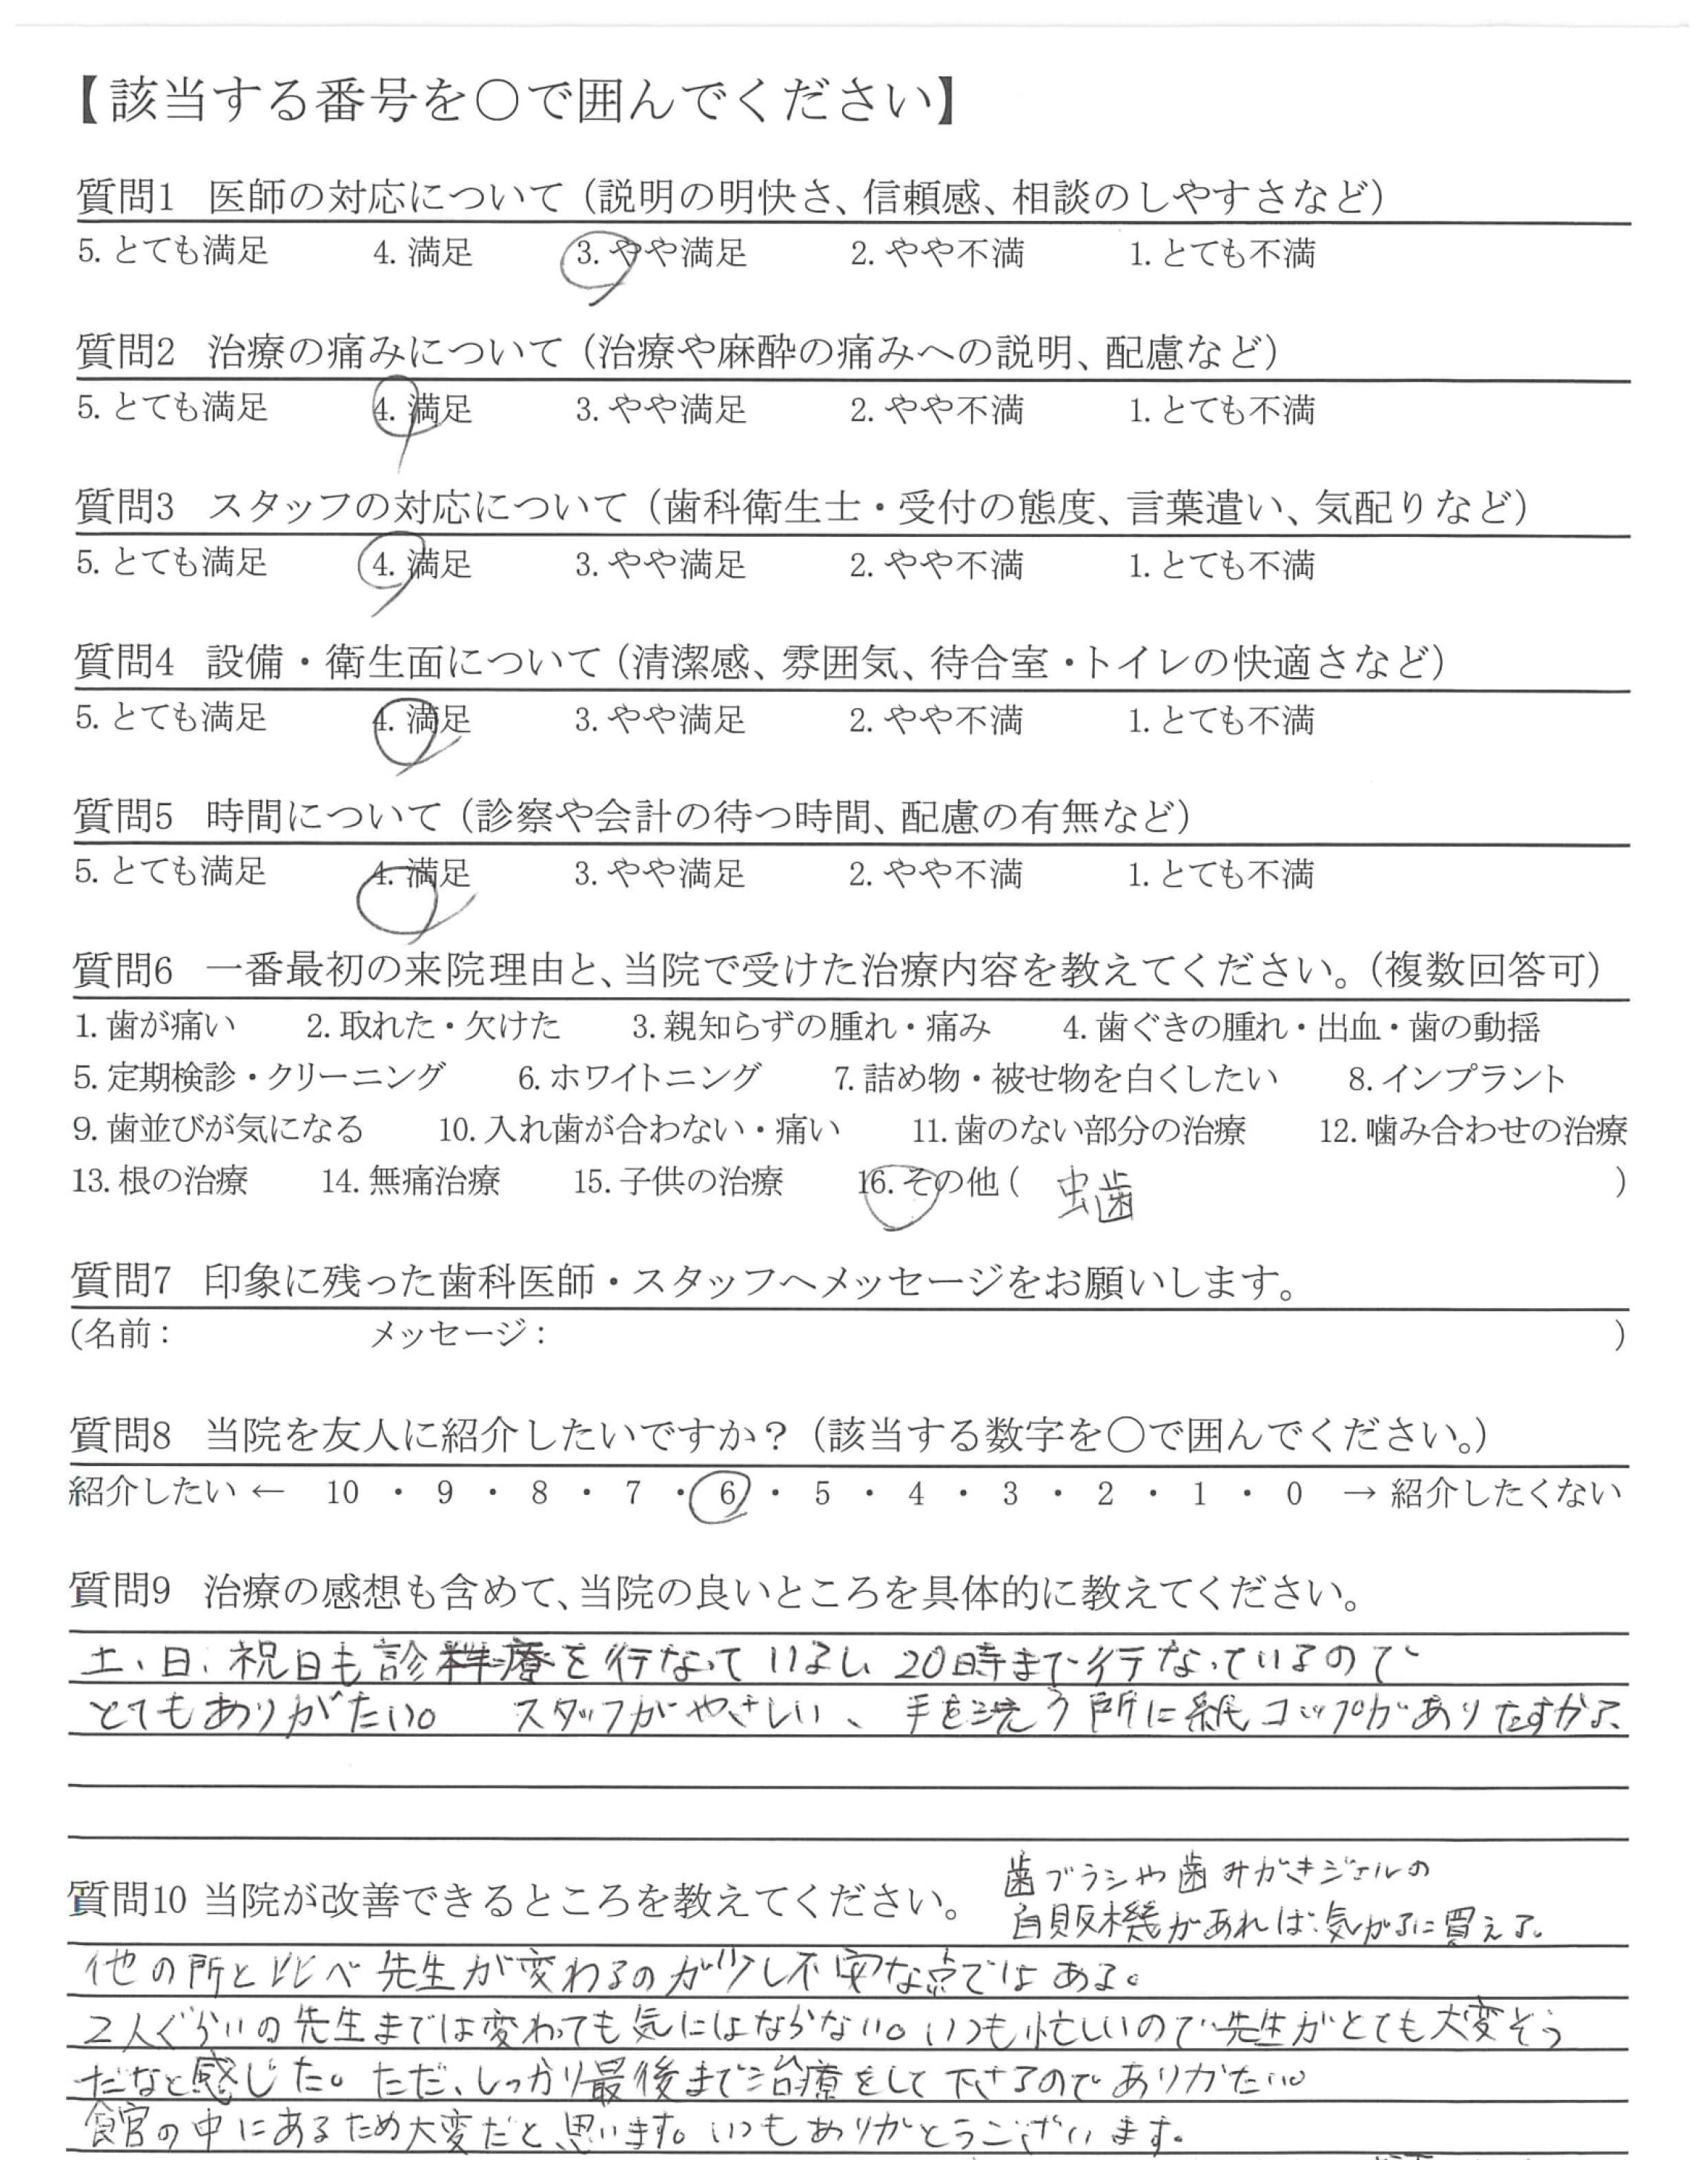 【該当する番号を○で囲んでください】
質問1 医師の対応について（説明の明快さ、信頼感、相談のしやすさなど）
5. とても満足 4. 満足 3. やや満足 2. やや不満 1. とても不満
質問2 治療の痛みについて（治療や麻酔の痛みへの説明、配慮など）
5. とても満足 4. 満足 3. やや満足 2. やや不満 1. とても不満
質問3 スタッフの対応について（歯科衛生士・受付の態度、言葉遣い、気配りなど）
5. とても満足 4. 満足 3. やや満足 2. やや不満 1. とても不満
質問4 設備・衛生面について（清潔感、雰囲気、待合室・トイレの快適さなど）
5. とても満足 4. 満足 3. やや満足 2. やや不満 1. とても不満
質問5 時間について（診察や会計の待つ時間、配慮の有無など）
5. とても満足 4. 満足 3. やや満足 2. やや不満 1. とても不満
質問6 一番最初の来院理由と、当院で受けた治療内容を教えてください。（複数回答可）
1. 歯が痛い 2. 取れた・欠けた 3. 親知らずの腫れ・痛み 4. 歯ぐきの腫れ・出血・歯の動揺
5. 定期検診・クリーニング 6. ホワイトニング 7. 詰め物・被せ物を白くしたい 8. インプラント
9. 歯並びが気になる 10. 入れ歯が合わない・痛い 11. 歯のない部分の治療 12. 噛み合わせの治療
13. 根の治療 14. 無痛治療 15. 子供の治療 16. その他（ 虫歯 ）
質問7 印象に残った歯科医師・スタッフへメッセージをお願いします。
（名前： メッセージ： ）
質問8 当院を友人に紹介したいですか？（該当する数字を○で囲んでください。）
紹介したい ← 10 ・ 9 ・ 8 ・ 7 ・ 6 ・ 5 ・ 4 ・ 3 ・ 2 ・ 1 ・ 0 → 紹介したくない
質問9 治療の感想も含めて、当院の良いところを具体的に教えてください。
土、日、祝日も診療を行なっているし 20時まで行なっているので
とてもありがたい。 スタッフがやさしい、手を洗う所に紙コップがあり
質問10 当院が改善できるところを教えてください。
歯ブラシや歯みがきジェルの
自販機があれば気がるに買える。
他の所と比べ先生が変わるのが少し不安な点ではある。
2人ぐらいの先生までは変わっても気にはならない。いつも忙しいので先生がとても大変そう
だなと感じた。ただ、しっかり最後まで治療をして下さるのでありがたい。
の中にあるため大変だと思います。いつもありがとうございます。